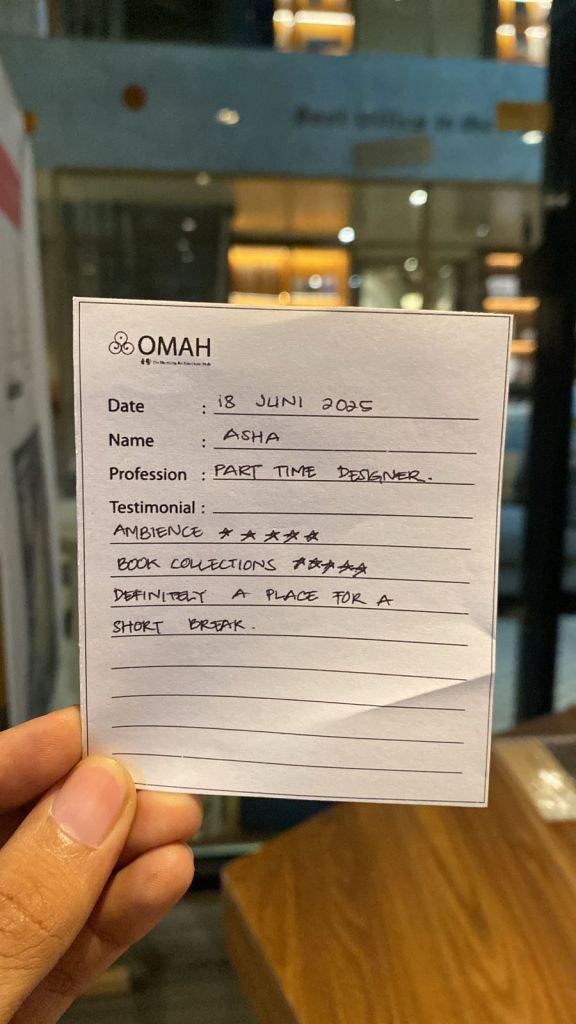 OMAH
Date : 18 JUNI 2025
Name : ASHA
Profession : PART TIME DESIGNER.
Testimonial :
AMBIENCE ★ ★ ★ ★ ★
BOOK COLLECTIONS ★★★★★
DEFINITELY A PLACE FOR A
SHORT BREAK.